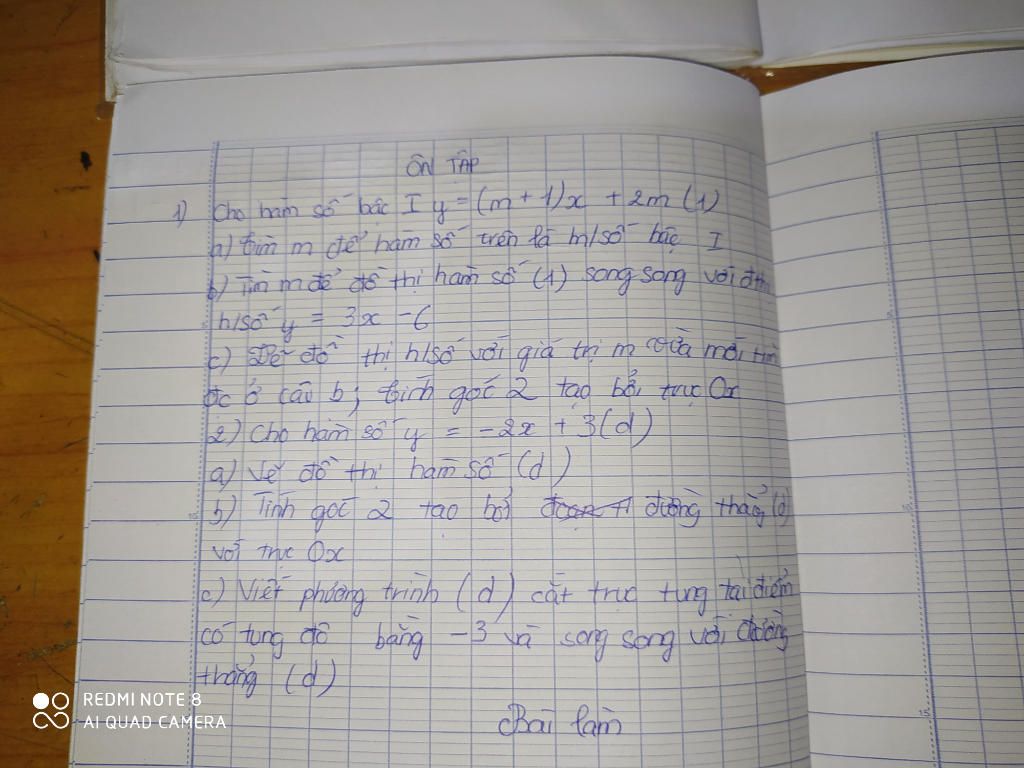 ÔN TẬP
1) Cho hàm số bậc I y = (m + 1)x + 2m (1)
a) tìm m để hàm số trên là h/số bậc I
b) Tìm m để đồ thị hàm số (1) song song với đthị
h/số y = 3x - 6
c) Vẽ đồ thị h/số với giá trị m vừa mới tìm
đc ở câu b, tính góc 2 tạo bởi trục Ox
2) Cho hàm số y = -2x + 3 (d)
a) Vẽ đồ thị hàm số (d)
b) Tính góc 2 tạo bởi đường thẳng (d)
với trục Ox
c) Viết phương trình (d) cắt trục tung tại điểm
có tung độ bằng -3 và song song với đường
thẳng (d)
Bài làm
REDMI NOTE 8
AI QUAD CAMERA